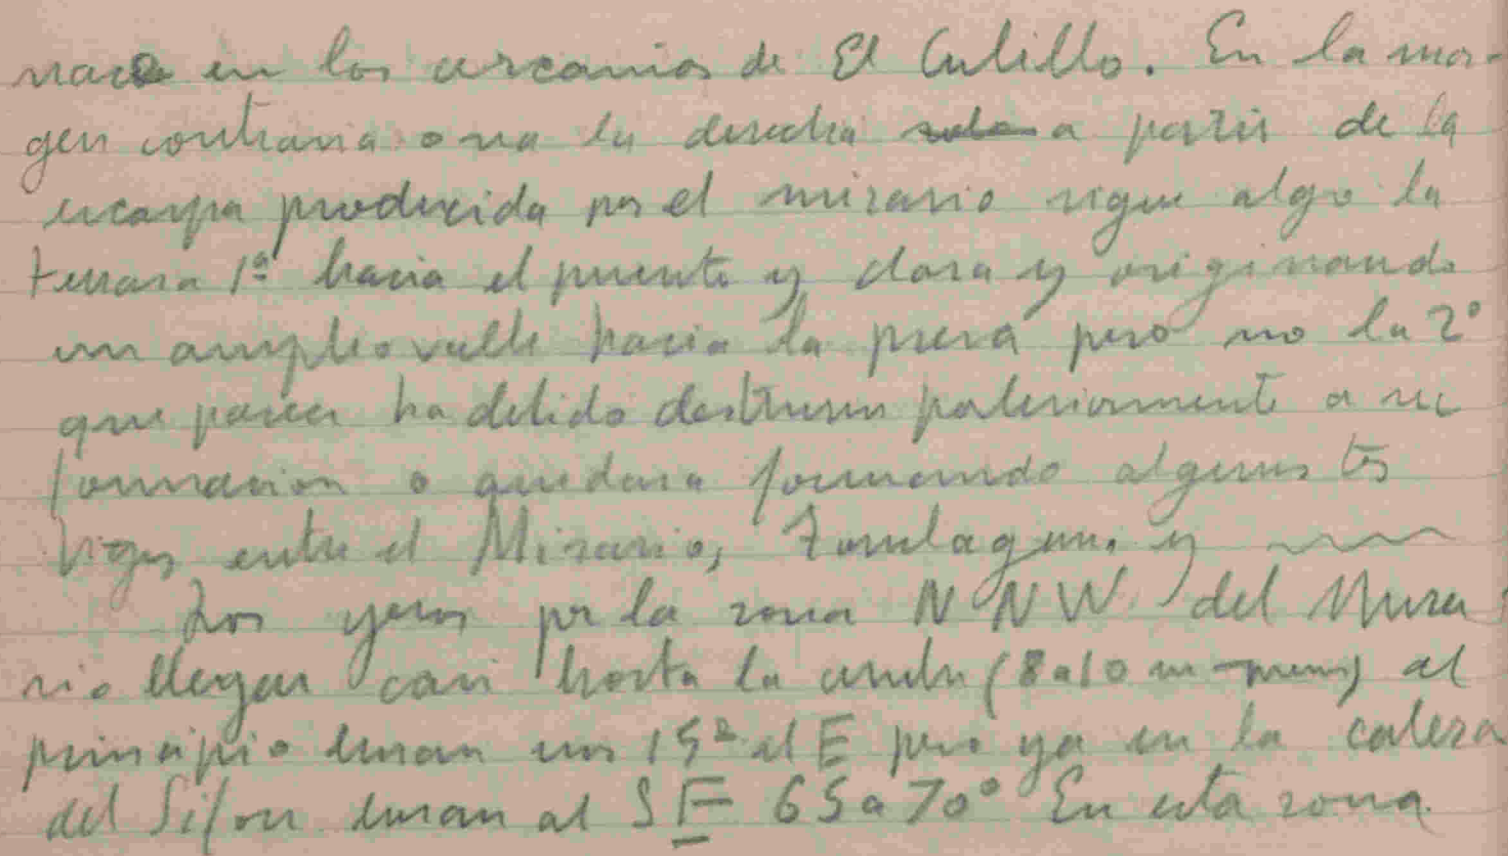 nace en los cercanias de El Cubillo. En la mar-
gen contraria o sea la derecha a partir de la
escarpa producida por el mirario sigue algo la
terraza 1ª hacia el puente y clara y originando
un amplio valle hacia la presa pero no la 2º
que parece ha debido destruirse posteriormente a su
formacion o quedara formando algunos tes
tigos entre el Mirario, y
Los yesos por la zona NNW del Mira
rio llegan casi hasta la cumbre (8 a 10 m -) al
principio buzan unos 15º al E pero ya en la calera
del Sifon buzan al SE 65 a 70° En esta zona